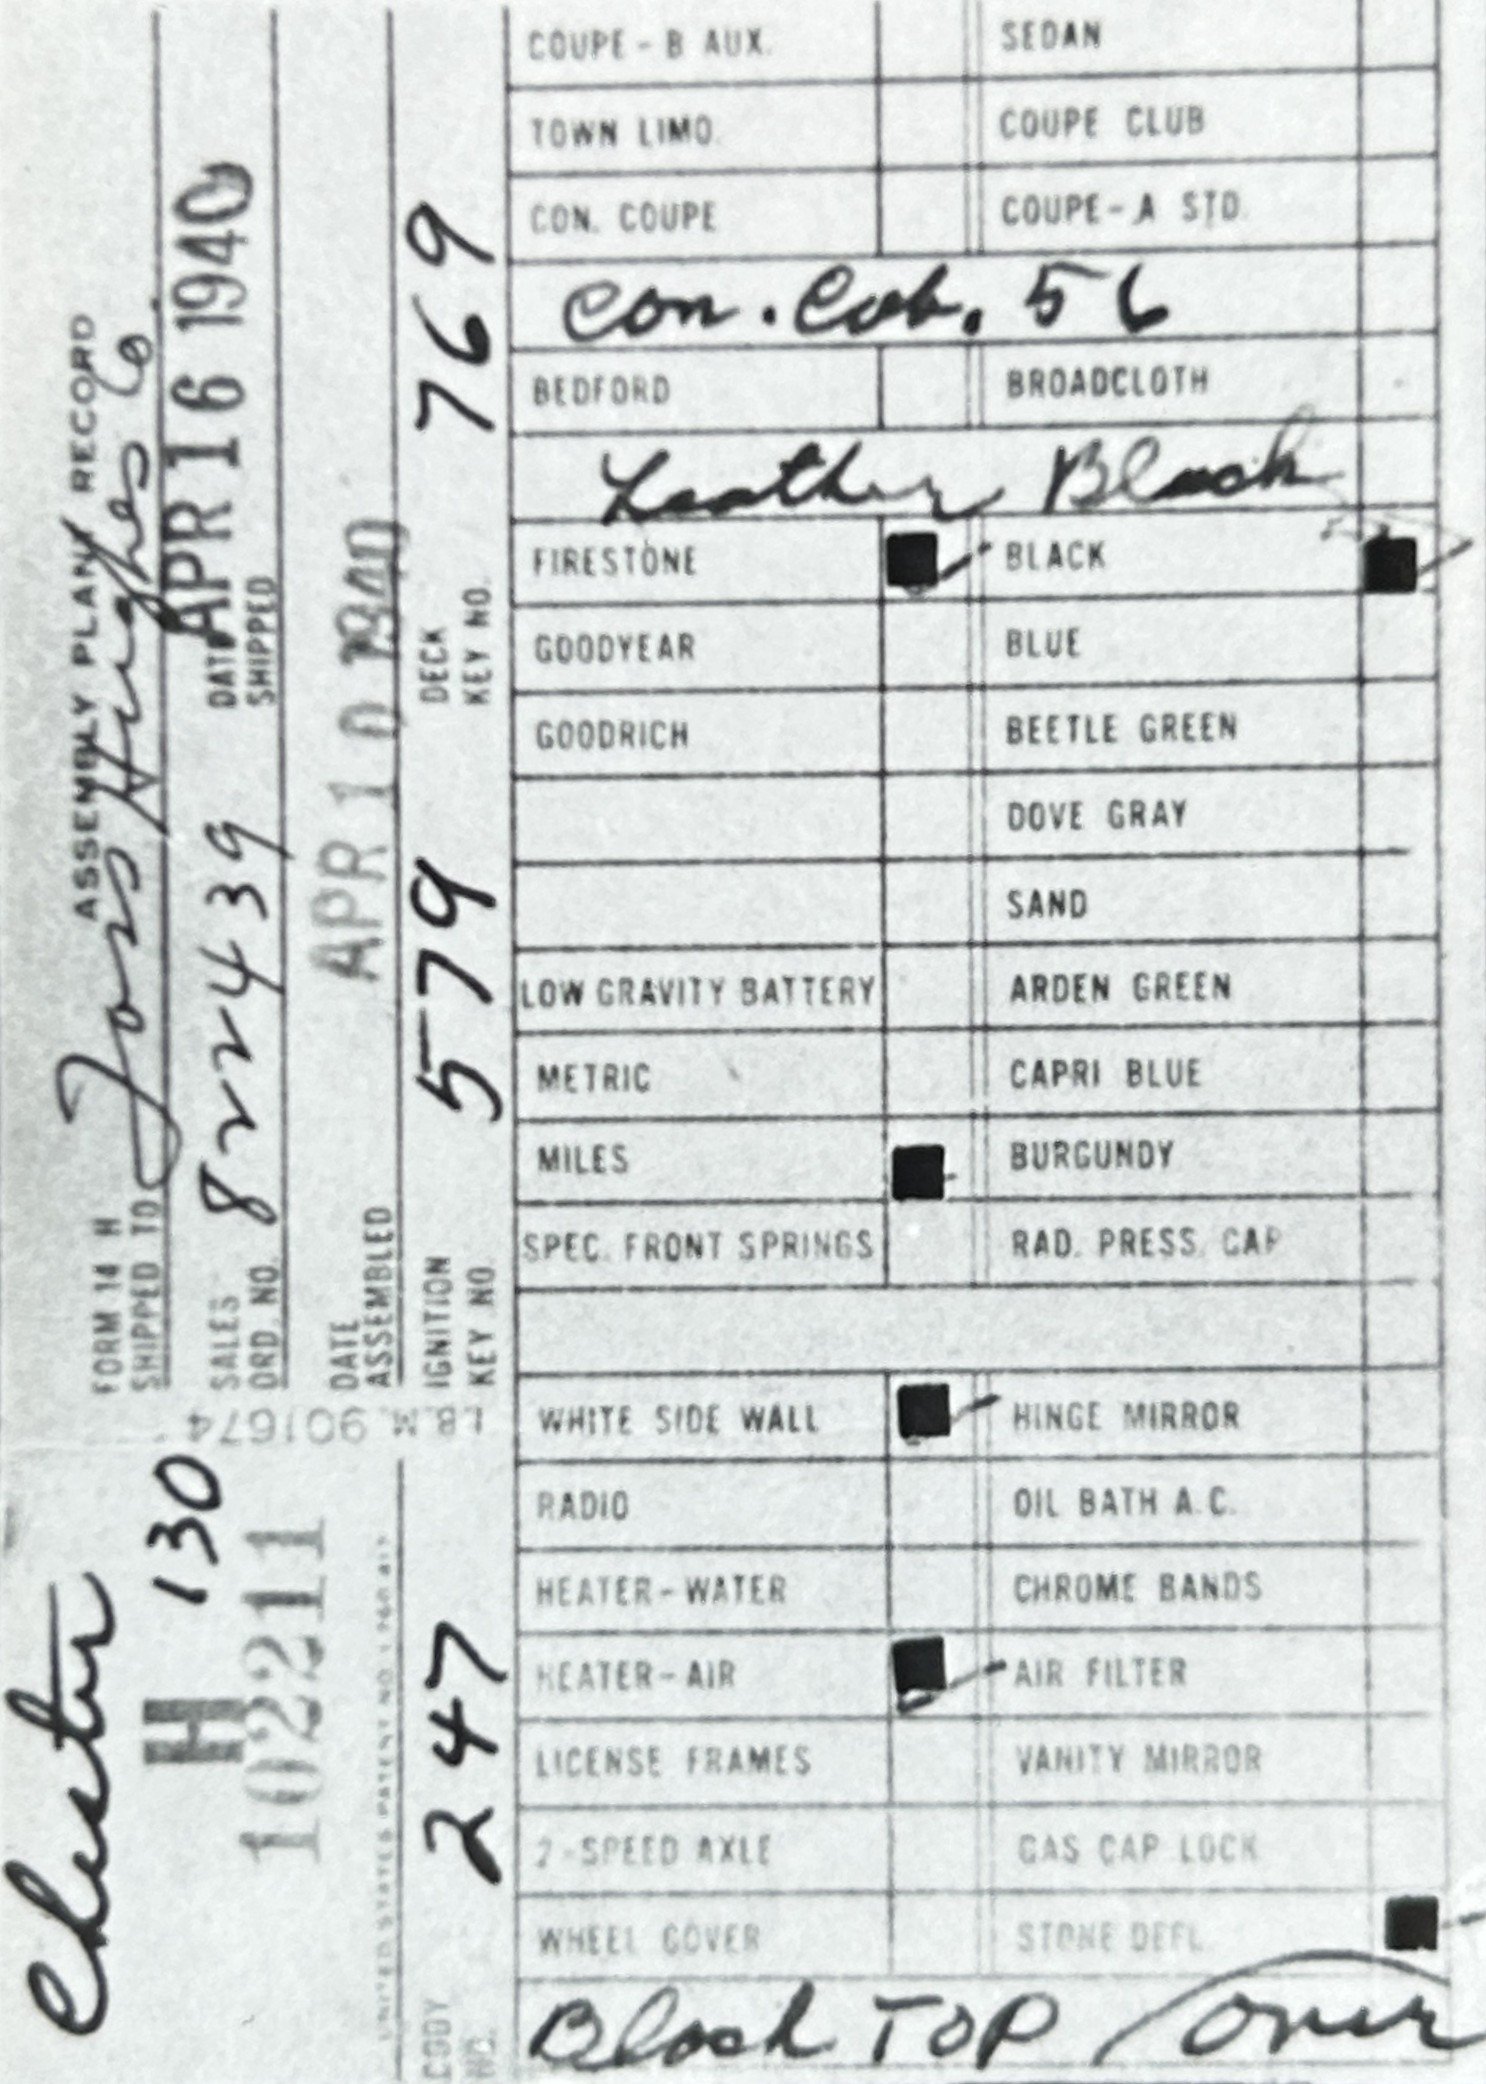 ASSEMBLY PLANT RECORD
FORM 14 H
SHIPPED TO Hughes Co.
SALES ORD. NO. 822439
DATE SHIPPED APR 16 1940
DATE ASSEMBLED APR 10 1940
IGNITION KEY NO. 579
DECK KEY NO. 769
I.B.M. 901674
Chester
H 130
H
102211
UNITED STATES PATENT NO.
BODY NO. 247
COUPE - B AUX. SEDAN
TOWN LIMO. COUPE CLUB
CON. COUPE COUPE - A STD.
Con. Cob. 56
BEDFORD BROADCLOTH
Leather Black
FIRESTONE BLACK
GOODYEAR BLUE
GOODRICH BEETLE GREEN
DOVE GRAY
SAND
LOW GRAVITY BATTERY ARDEN GREEN
METRIC CAPRI BLUE
MILES BURGUNDY
SPEC. FRONT SPRINGS RAD. PRESS. CAP
WHITE SIDE WALL HINGE MIRROR
RADIO OIL BATH A.C.
HEATER - WATER CHROME BANDS
HEATER - AIR AIR FILTER
LICENSE FRAMES VANITY MIRROR
2-SPEED AXLE GAS CAP LOCK
WHEEL COVER STONE DEFL.
Black TOP over